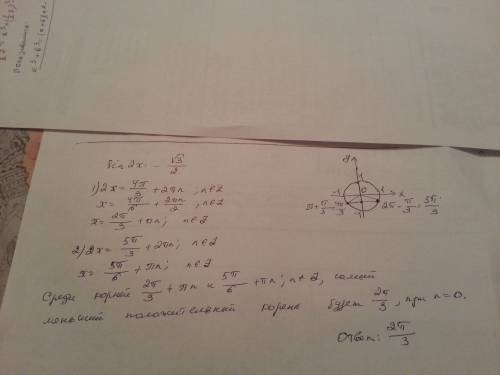 sin 2x = -√3/2
1) 2x = 4π/3 + 2πn ; n∈Z
x = 4π/6 + 2πn/2 ; n∈Z
x = 2π/3 + πn; n∈Z
2) 2x = 5π/3 + 2πn; n∈Z
x = 5π/6 + πn; n∈Z
y
1
-1 0 1 x
π + π/3 = 4π/3
2π - π/3 = 5π/3
-1
Среди корней 2π/3 + πn и 5π/6 + πn; n∈Z, самый
меньший положительный корень будет 2π/3, при n=0.
Ответ: 2π/3